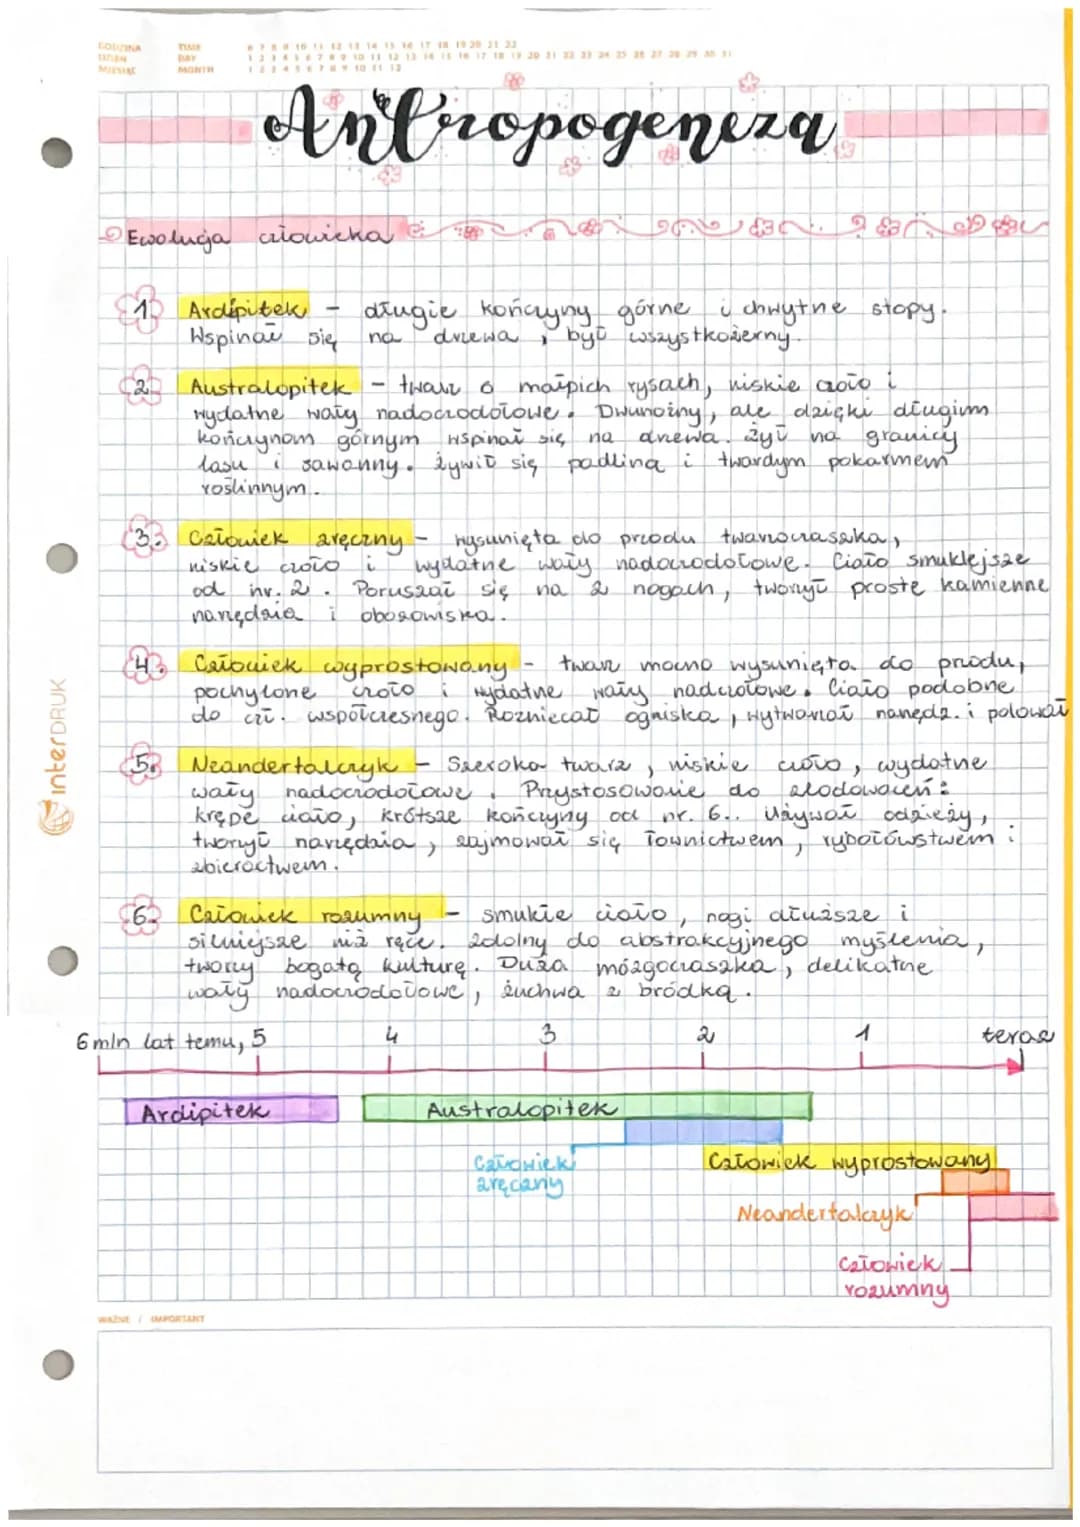 GODZINA TIME 6 7 8 9 10 11 12 13 14 15 16 17 18 19 20 21 22
DZIEŃ DAY 1 2 3 4 5 6 7 8 9 10 11 12 13 14 15 16 17 18 19 20 21 22 23 24 25 26 27 28 29 30 31
MIESIĄC MONTH 1 2 3 4 5 6 7 8 9 10 11 12
Antropogeneza
Ewolucja człowieka
1. Ardipitek - długie kończyny górne i chwytne stopy.
Wspinał się na drzewa, był wszystkożerny.
2. Australopitek - twarz o małpich rysach, niskie czoło i
wydatne wały nadoczodołowe. Dwunożny, ale dzięki długim
kończynom górnym wspinał się na drzewa. Żył na granicy
lasu i sawanny. Żywił się padliną i twardym pokarmem
roślinnym.
3. Człowiek zręczny - wysunięta do przodu twarzoczaszka,
niskie czoło i wydatne wały nadoczodołowe. Ciało smuklejsze
od nr. 2. Poruszał się na 2 nogach, tworzył proste kamienne
narzędzia i obozowiska.
4. Człowiek wyprostowany - twarz mocno wysunięta do przodu,
pochylone czoło i wydatne wały nadczołowe. Ciało podobne
do czł. współczesnego. Rozniecał ogniska, wytwarzał narzędz. i polował
5. Neandertalczyk - Szeroka twarz, niskie czoło, wydatne
wały nadoczodołowe. Przystosowanie do zlodowaceń:
krępe ciało, krótsze kończyny od nr. 6.. Używał odzieży,
tworzył narzędzia, zajmował się łownictwem, rybołówstwem i
zbieractwem.
6. Człowiek rozumny - smukłe ciało, nogi dłuższe i
silniejsze niż ręce. Zdolny do abstrakcyjnego myślenia,
tworzy bogatą kulturę. Duża mózgoczaszka, delikatne
wały nadoczodołowe, żuchwa z bródką.
6 mln lat temu, 5 4 3 2 1 teraz
Ardipitek Australopitek
Człowiek zręczny
Człowiek wyprostowany
Neandertalczyk
Człowiek
rozumny
WAŻNE / IMPORTANT
interDRUK